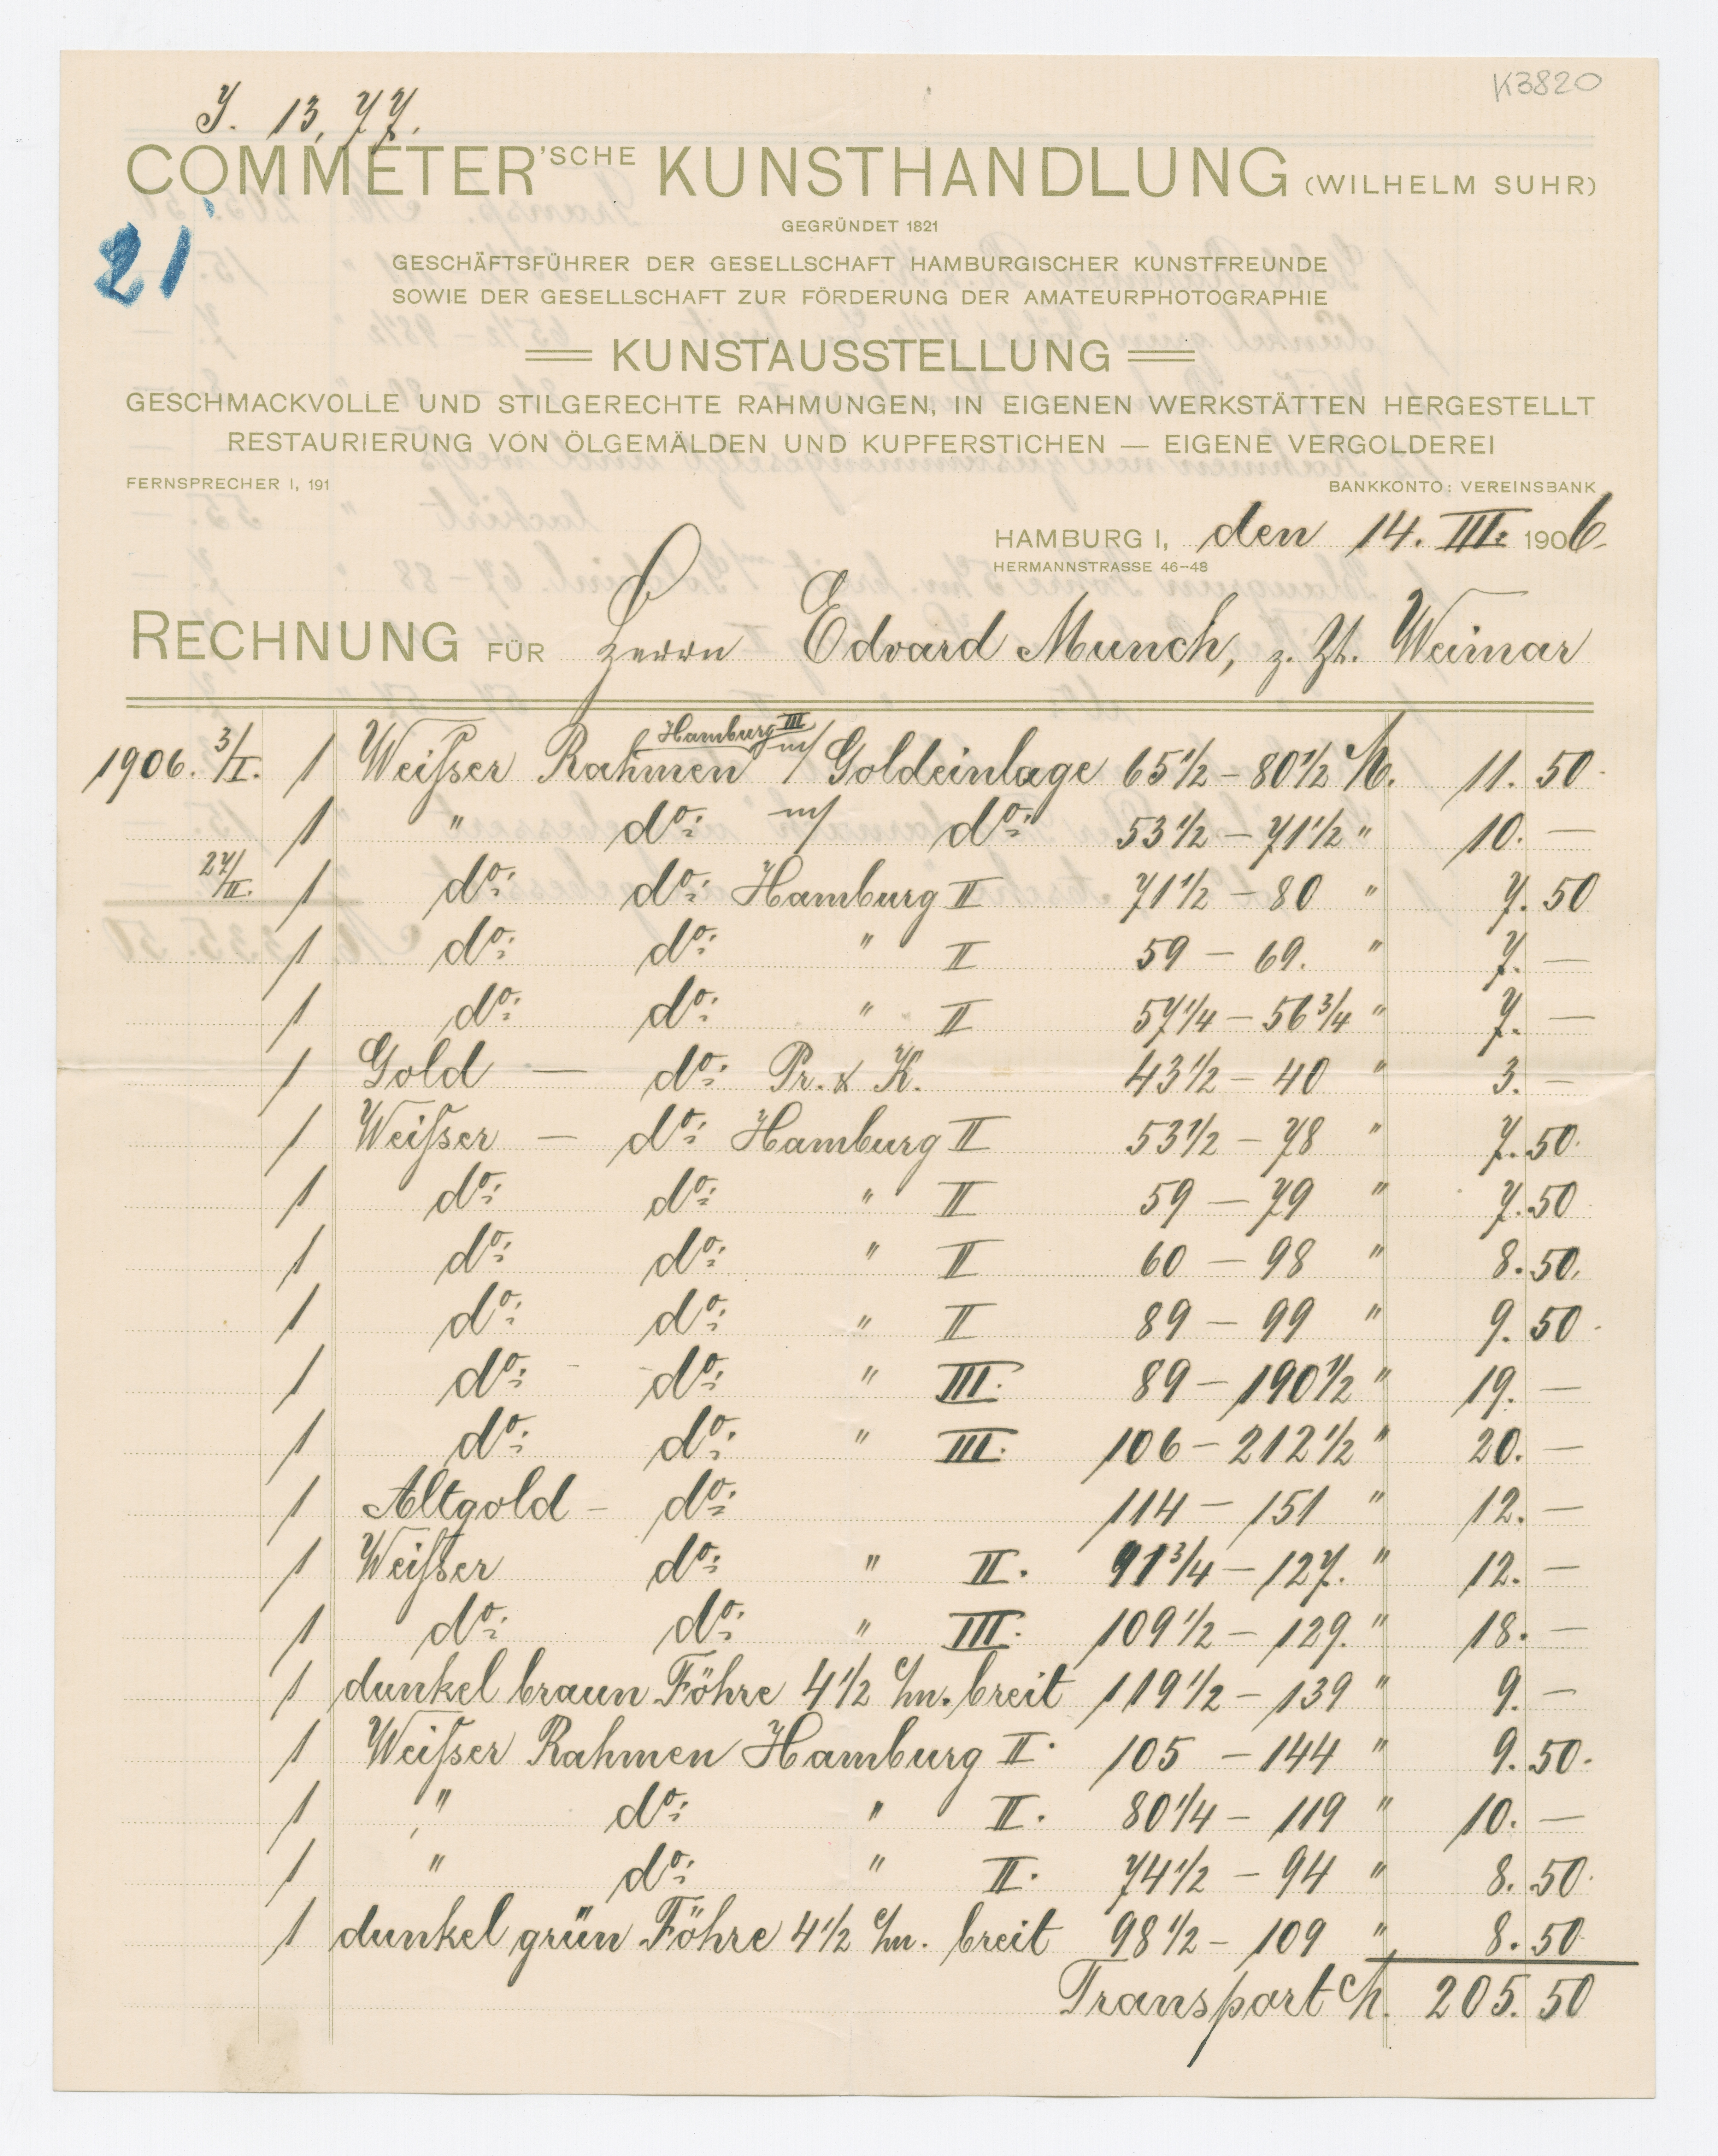 K3820
J. 13, 77.
COMMETER'SCHE KUNSTHANDLUNG (WILHELM SUHR)
GEGRÜNDET 1821
21
GESCHÄFTSFÜHRER DER GESELLSCHAFT HAMBURGISCHER KUNSTFREUNDE
SOWIE DER GESELLSCHAFT ZUR FÖRDERUNG DER AMATEURPHOTOGRAPHIE
KUNSTAUSSTELLUNG
GESCHMACKVOLLE UND STILGERECHTE RAHMUNGEN, IN EIGENEN WERKSTÄTTEN HERGESTELLT
RESTAURIERUNG VON ÖLGEMÄLDEN UND KUPFERSTICHEN — EIGENE VERGOLDEREI
FERNSPRECHER I, 191 BANKKONTO: VEREINSBANK
HAMBURG I, den 14. III. 1906.
HERMANNSTRASSE 46-48
RECHNUNG FÜR Herrn Edvard Munch, z. Zt. Weimar
Hamburg III
1906. 3/I. 1 Weißer Rahmen m/ Goldeinlage 65 1/2 – 80 1/2 M. 11. 50.
1 " do: m/ do: 53 1/2 – 71 1/2 " 10. —
27/II. 1 do: do: Hamburg II 71 1/2 – 80 " 7. 50
1 do: do: " II 59 – 69. " 7. —
1 do: do: " II 57 1/4 – 56 3/4 " 7. —
1 Gold — do: Pr. & K. 43 1/2 – 40 " 3. —
1 Weißer — do: Hamburg II 53 1/2 – 78 " 7. 50.
1 do: do: " II 59 – 79 " 7. 50
1 do: do: " II 60 – 98 " 8. 50.
1 do: do: " II 89 – 99 " 9. 50.
1 do: do: " III. 89 – 190 1/2 " 19. —
1 do: do: " III. 106 – 212 1/2 " 20. —
1 Altgold – do: 114 – 151 " 12. —
1 Weißer do: " II. 91 3/4 – 127. " 12. —
1 do: do: " III. 109 1/2 – 129. " 18. —
1 dunkel braun Föhre 4 1/2 c/m. breit 119 1/2 – 139 " 9. —
1 Weißer Rahmen Hamburg II. 105 – 144 " 9. 50.
1 " do: " II. 80 1/4 – 119 " 10. —
1 " do: " II. 74 1/2 – 94 " 8. 50.
1 dunkel grün Föhre 4 1/2 c/m. breit 98 1/2 – 109 " 8. 50.
Transport M. 205. 50